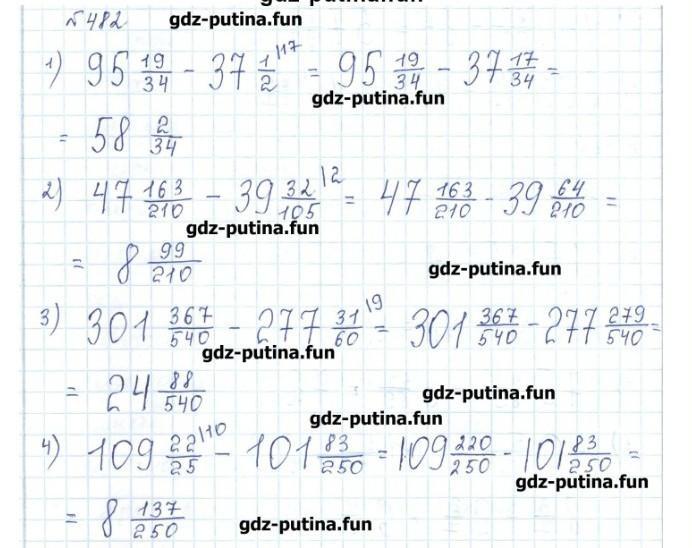 gdz-putina.fun
№482 gdz-putina.fun
1) 95 19/34 - 37 1/2 |17 = 95 19/34 - 37 17/34 =
gdz-putina.fun
= 58 2/34
2) 47 163/210 - 39 32/105 |2 = 47 163/210 - 39 64/210 =
gdz-putina.fun
= 8 99/210 gdz-putina.fun
3) 301 367/540 - 277 31/60 |9 = 301 367/540 - 277 279/540 =
gdz-putina.fun
= 24 88/540 gdz-putina.fun
gdz-putina.fun
4) 109 22/25 |10 - 101 83/250 = 109 220/250 - 101 83/250 =
gdz-putina.fun
= 8 137/250 gdz-putina.fun